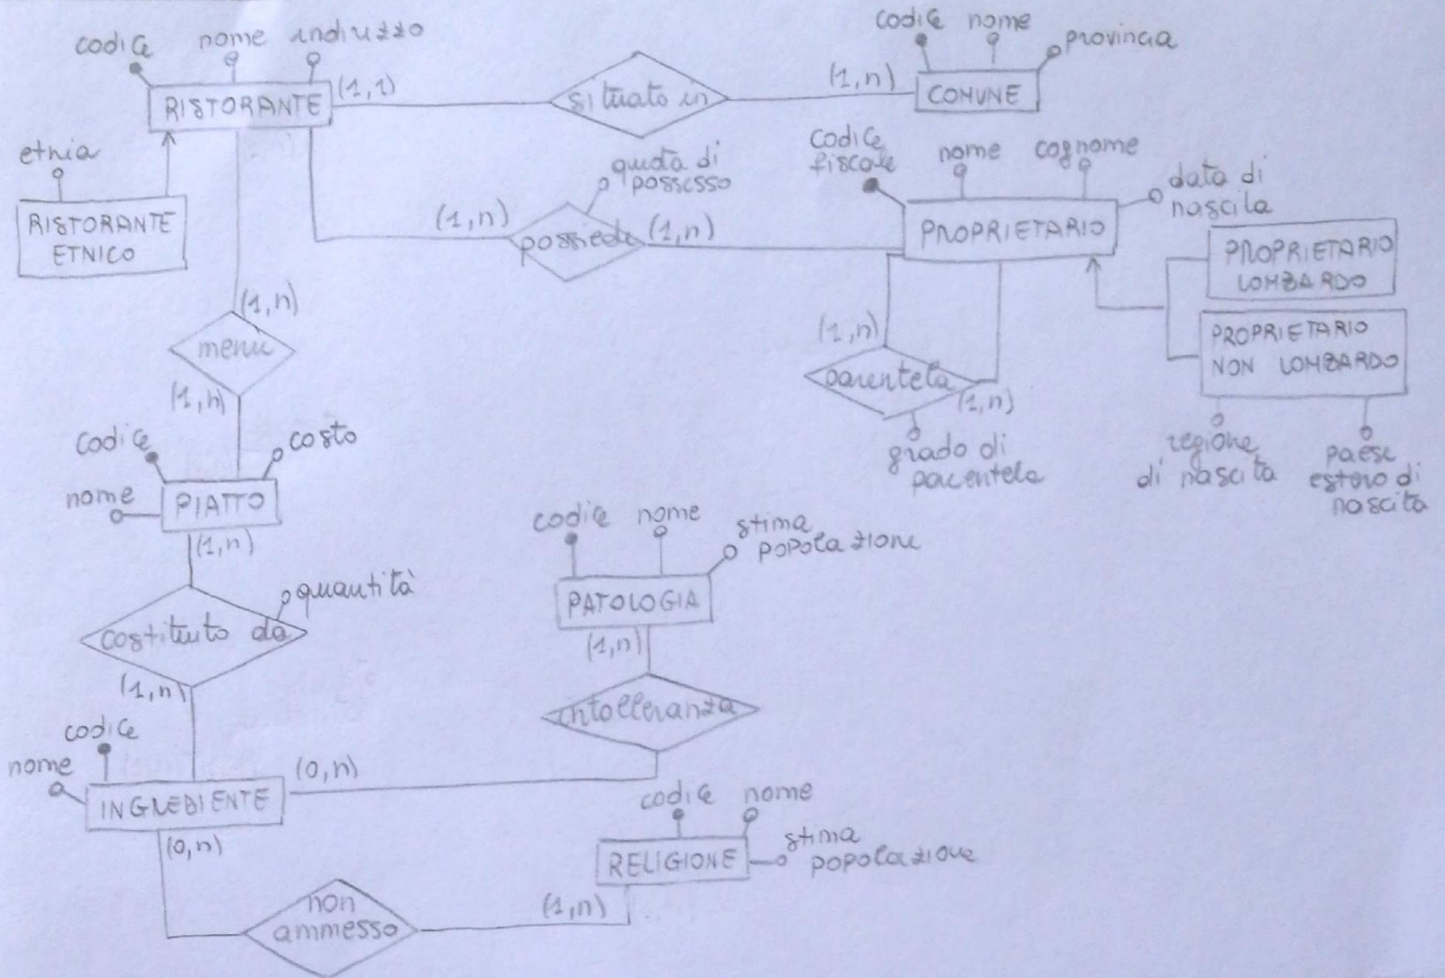 codice nome indirizzo
RISTORANTE
(1,1)
situato in
(1,n)
codice nome provincia
COMUNE
etnia
RISTORANTE
ETNICO
quota di
possesso
(1,n)
possiede
(1,n)
codice
fiscale
nome cognome
data di
nascita
PROPRIETARIO
PROPRIETARIO
LOMBARDO
PROPRIETARIO
NON LOMBARDO
regione
di nascita
paese
estero di
nascita
(1,n)
parentela
(1,n)
grado di
parentela
(1,n)
menu
(1,n)
codice
costo
nome
PIATTO
(1,n)
quantità
costituito da
(1,n)
codice
nome
INGREDIENTE
(0,n)
codice nome
stima
popolazione
PATOLOGIA
(1,n)
intolleranza
(0,n)
codice nome
stima
popolazione
RELIGIONE
(1,n)
non
ammesso